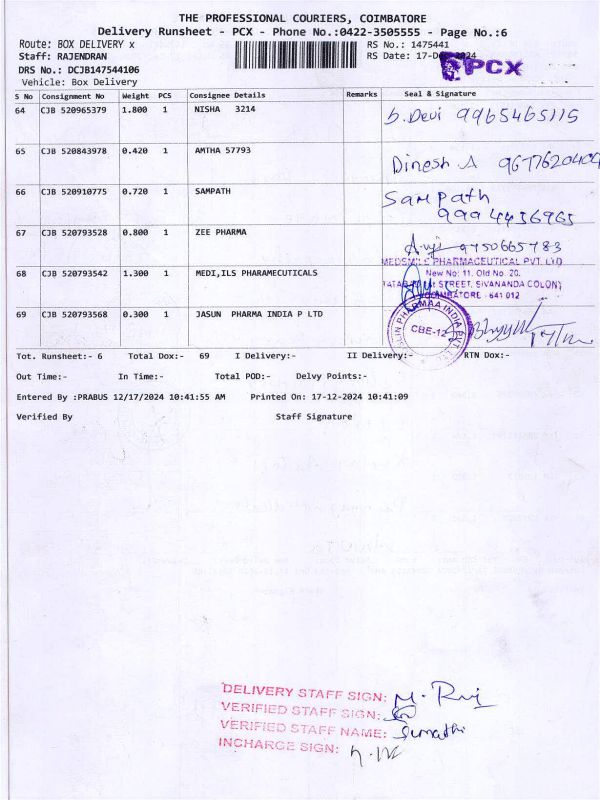 THE PROFESSIONAL COURIERS, COIMBATORE
Delivery Runsheet - PCX - Phone No.:0422-3505555 - Page No.:6
Route: BOX DELIVERY x RS No.: 1475441
Staff: RAJENDRAN RS Date: 17-Dec-2024
DRS No.: DCJB147544106 PCX
Vehicle: Box Delivery
S No Consignment No Weight PCS Consignee Details Remarks Seal & Signature
64 CJB 520965379 1.800 1 NISHA 3214 b.Devi 9965465115
65 CJB 520843978 0.420 1 AMTHA 57793 Dinesh A 9677620409
66 CJB 520910775 0.720 1 SAMPATH Sampath
9994456965
67 CJB 520793528 0.800 1 ZEE PHARMA 9750665783
MEDSMILS PHARMACEUTICAL PVT. LTD
68 CJB 520793542 1.300 1 MEDI,ILS PHARAMECUTICALS New No: 11, Old No. 20,
STREET, SIVANANDA COLONY
COIMBATORE - 641 012
69 CJB 520793568 0.300 1 JASUN PHARMA INDIA P LTD PHARMAA INDIA PVT LTD
CBE-12
Tot. Runsheet:- 6 Total Dox:- 69 I Delivery:- II Delivery:- RTN Dox:-
Out Time:- In Time:- Total POD:- Delvy Points:-
Entered By :PRABUS 12/17/2024 10:41:55 AM Printed On: 17-12-2024 10:41:09
Verified By Staff Signature
DELIVERY STAFF SIGN: M. Raj
VERIFIED STAFF SIGN:
VERIFIED STAFF NAME: Sumathi
INCHARGE SIGN: